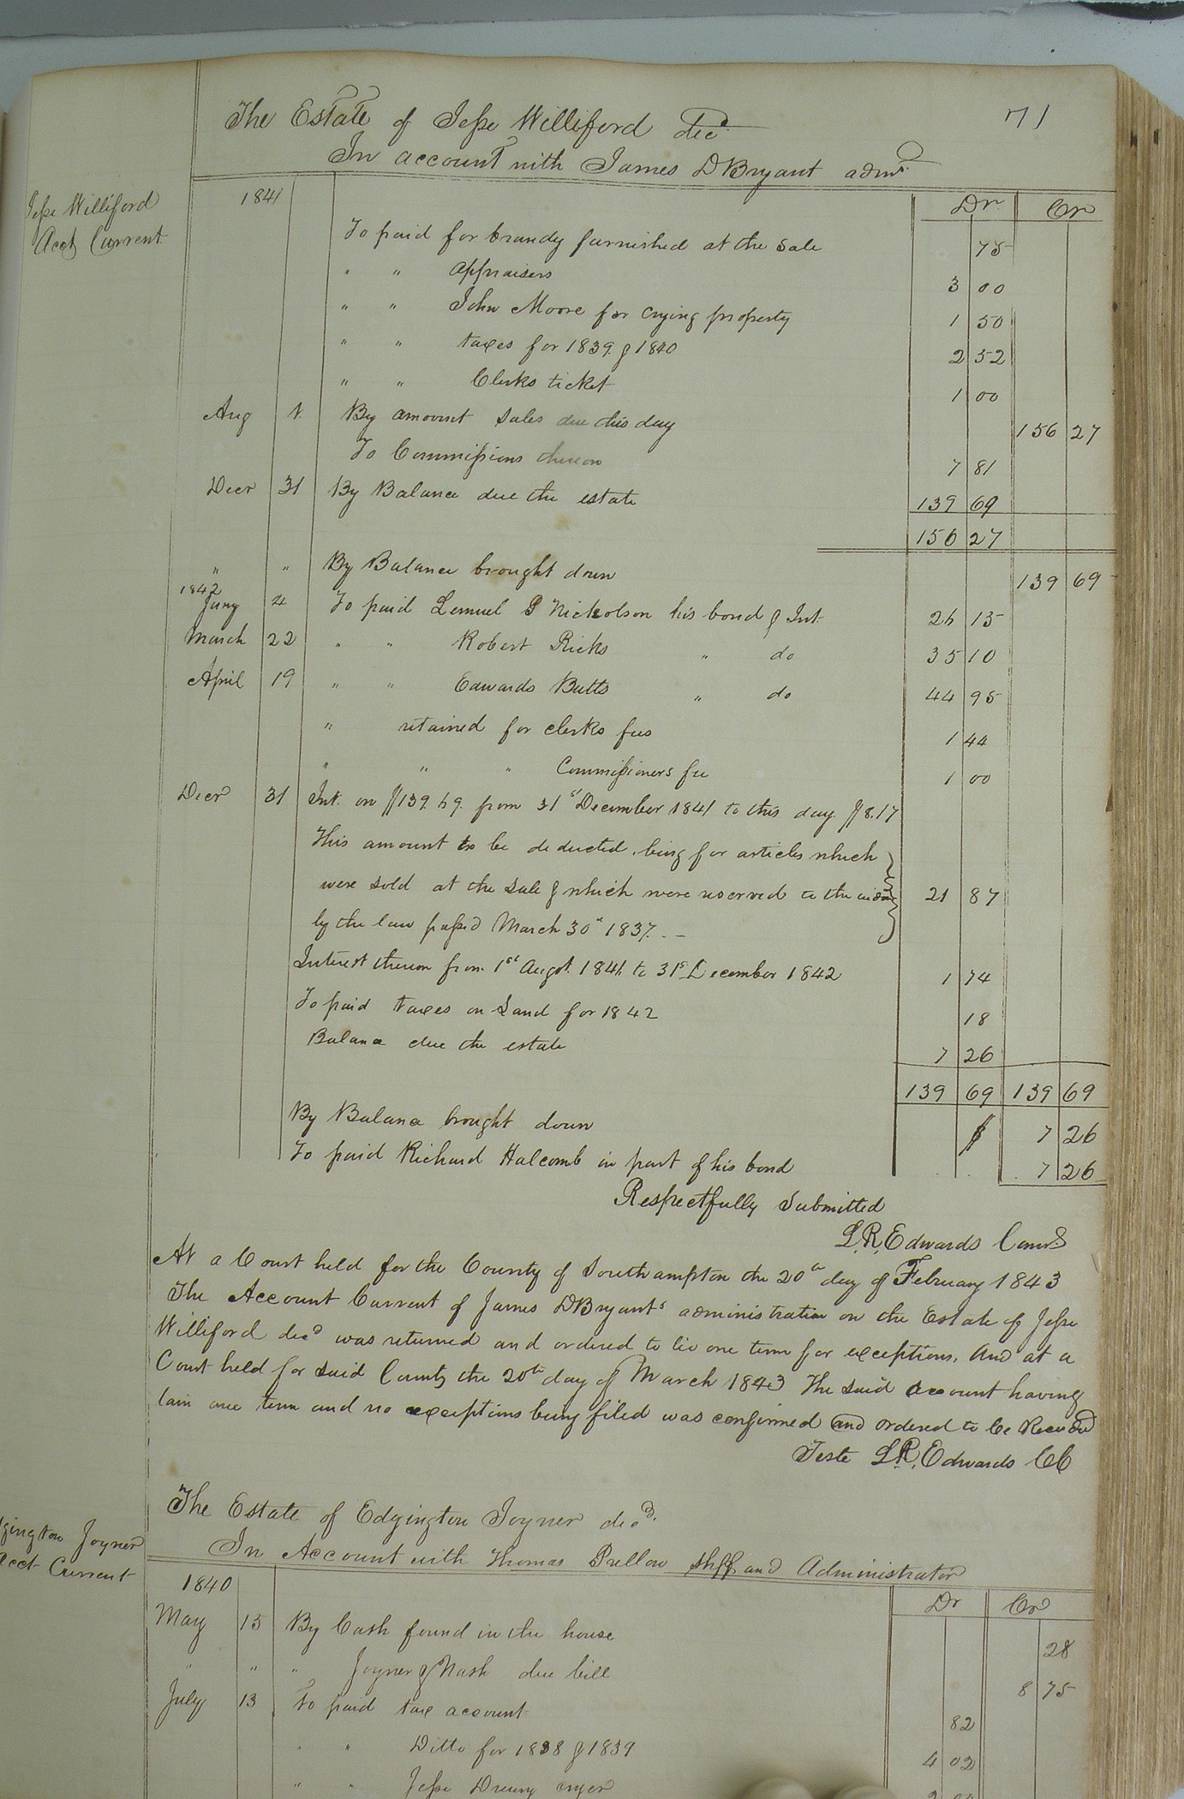 71
The Estate of Jesse Williford decd
In account with James D Bryant admr
Jesse Williford
Acct Current
1841
Dr Cr
To paid for brandy furnished at the Sale 75
" " appraisers 3 00
" " John Moore for crying property 1 50
" " taxes for 1839 & 1840 2 52
" " Clerks ticket 1 00
Aug 1 By amount Sales due this day 156 27
To Commissions thereon 7 81
Decr 31 By Balance due the estate 139 69
156 27
" " By Balance brought down 139 69
1842
Jany 4 To paid Lemuel P Nicholson his bond & Int 26 15
March 22 " " Robert Ricks " do 35 10
April 19 " " Edwards Butts " do 44 95
" retained for clerks fees 1 44
" " " Commissioners fee 1 00
Decr 31 Int. on $139.69. from 31st December 1841 to this day $8.17
This amount to be deducted, being for articles which
were sold at the sale & which were reserved to the widow 21 87
by the law passd March 30th 1837. -
Interest thereon from 1st Augst. 1841 to 31st December 1842 1 74
To paid taxes on Land for 1842 18
Balance due the estate 7 26
139 69 139 69
By Balance brought down $ 7 26
To paid Richard Halcomb in part of his bond 7 26
Respectfully Submitted
L. R. Edwards Comr
At a Court held for the County of Southampton the 20th day of February 1843
The Account Current of James D Bryants administration on the Estate of Jesse
Williford decd was returned and ordered to lie one term for exceptions. And at a
Court held for said County the 20th day of March 1843 The said account having
lain one term and no exceptions being filed was confirmed and ordered to be Recorded
Teste L. R. Edwards CC
The Estate of Edgington Joyner decd.
In Account with Thomas Pretlow shff and Administrator
gington Joyner
Acct Current
1840
Dr Cr
May 15 By Cash found in the house 28
" " " Joyner & Nash due bill 8 75
July 13 To paid tax account 82
" " Ditto for 1838 & 1839 4 02
" " Jesse Drewry